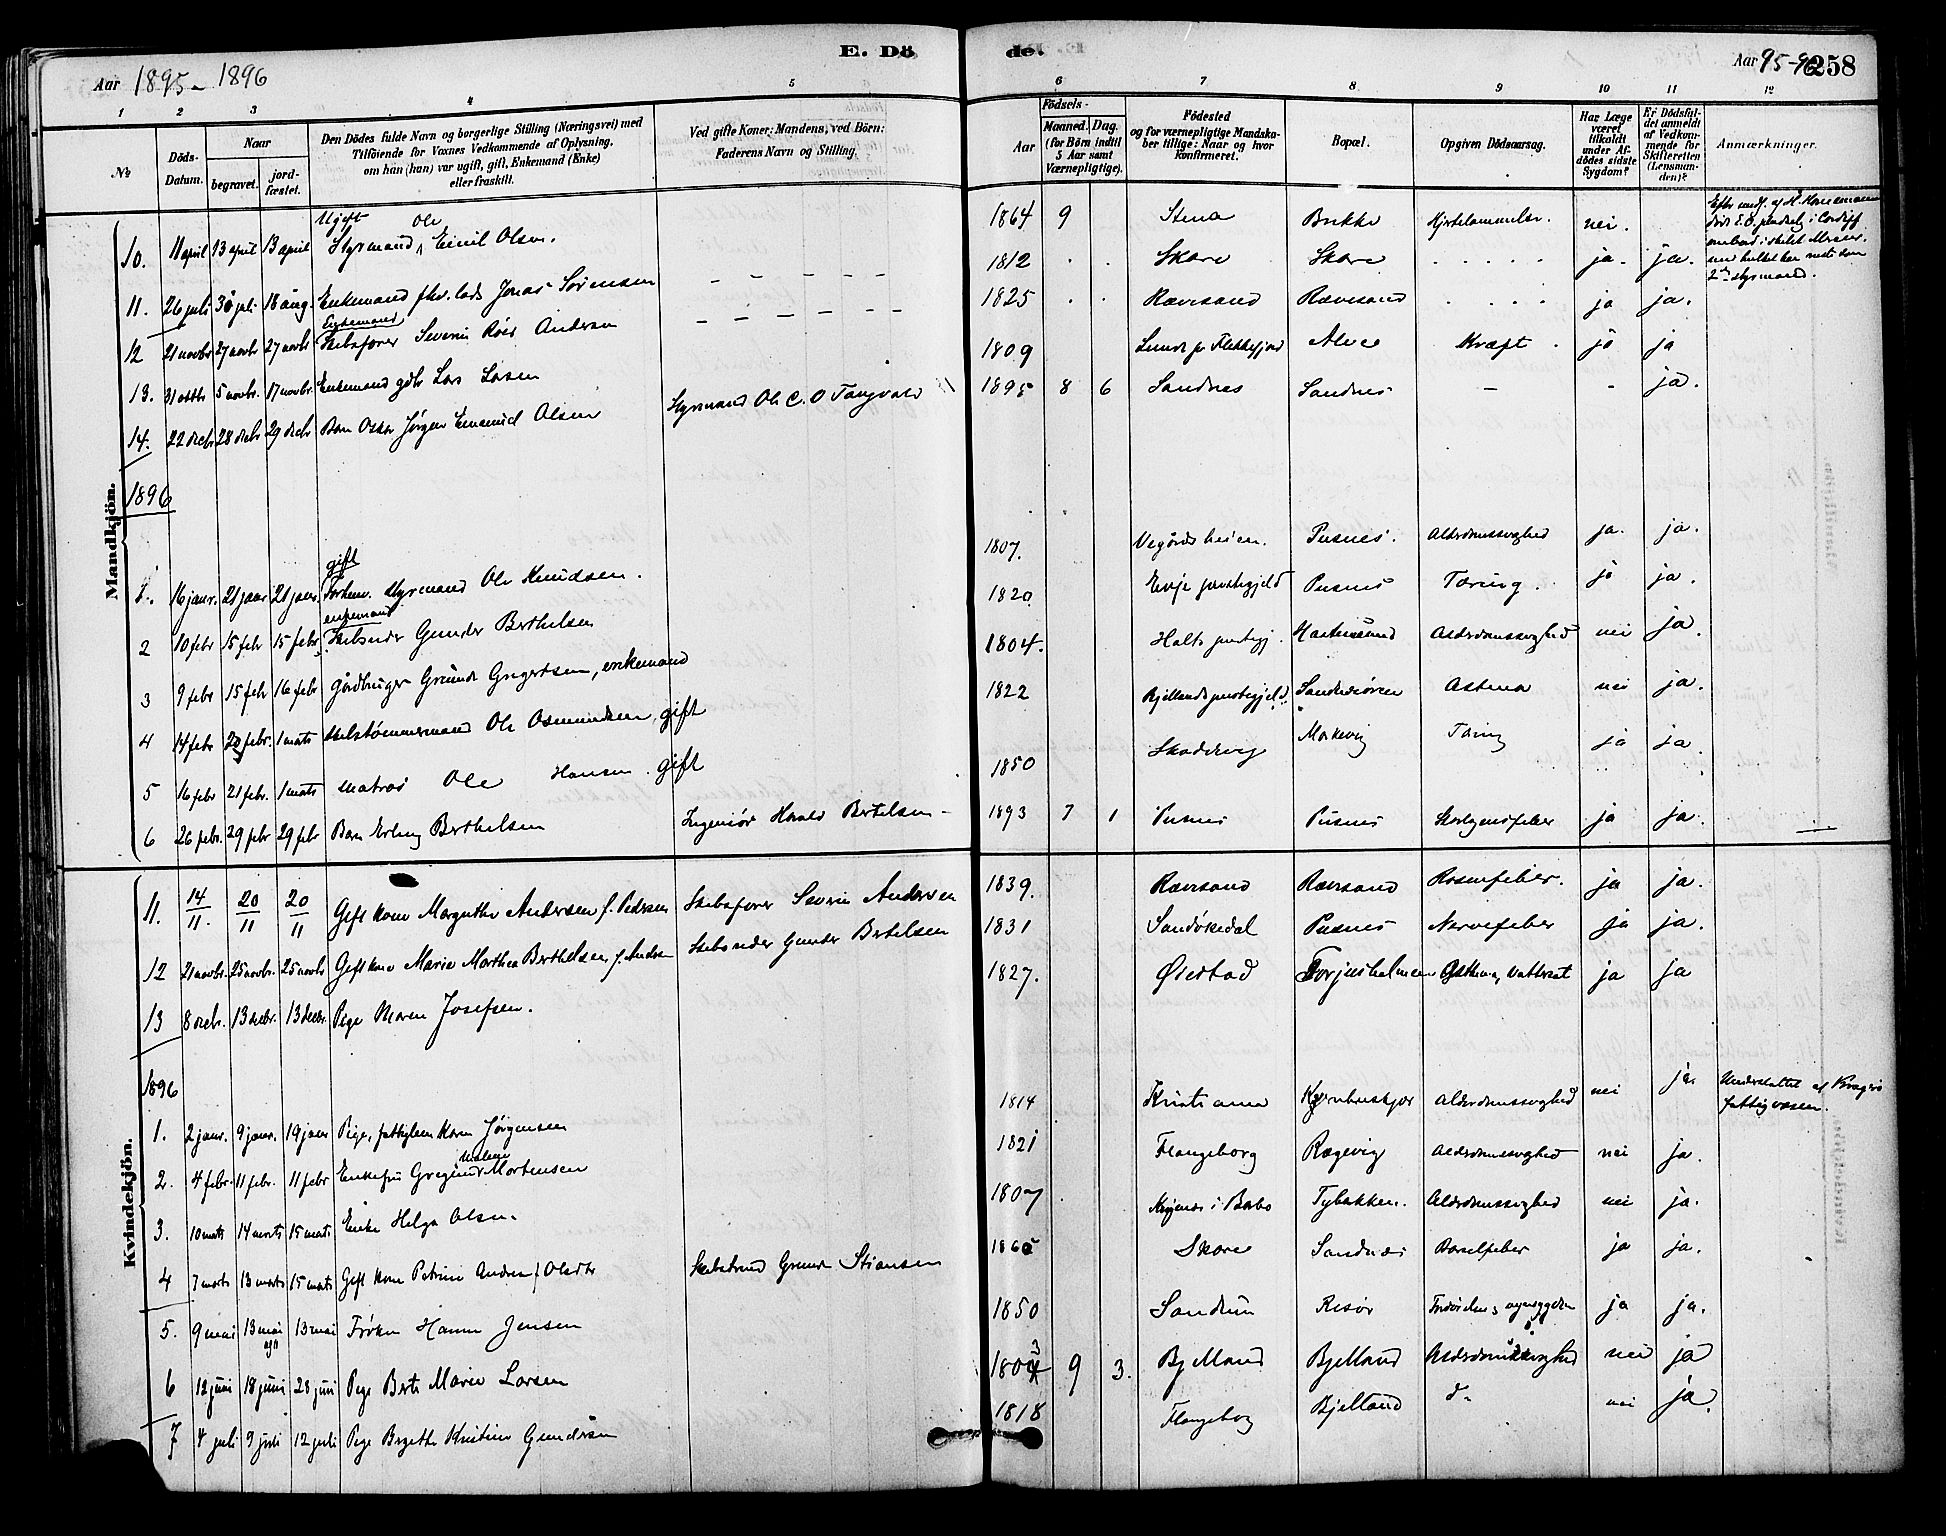 E. Dö de.
Aar 1895-1896
Aar 95-96 258
1 2 3 4 5 6 7 8 9 10 11 12
№
Döds-Datum.
Naar
begravet.
jordfæstet.
Den Dödes fulde Navn og borgerlige Stilling (Næringsvei) med
Tilföiende for Voxnes Vedkommende af Oplysning,
om han (hun) var ugift, gift, Enkemand (Enke)
eller fraskilt.
Ved gifte Koner: Mandens, ved Börn:
Faderens Navn og Stilling.
Födsels-
Aar
Maaned. Dag.
(for Børn indtil
5 Aar samt
Værnepligtige).
Födested
og for værnepligtige Mandskaber tillige: Naar og hvor
konfirmeret.
Bopæl.
Opgiven Dödsaarsag.
Har Læge
været
tilkaldt
under Afdödes sidste
Sygdom?
Er Dödsfaldet anmeldt
af Vedkommende for
Skifteretten
(Lensmanden)?
Anmærkninger.
Mandkjön.
10. 11 april 13 april 13 april Ugift Styrmand Ole Emil Olsen. 1864 9 Stena Brække Hjertelammelse. nei.
11. 26 juli 30 juli 18 aug. Enkemand fhv. lods Jonas Sörensen 1812 Skare Skare ja. ja.
12 21 novbr 27 novbr 27 novbr Enkemand Skibsfører Severin Roer Andersen 1825 Rævesand Rævesand ja ja.
13. 31 oktbr 5 novbr. 17 novbr. Enkemand gdbr Lars Larsen 1809 Lunde pr Flekkefjord Alve Kræft ja ja
14. 22 decbr 28 decbr 29 decbr Barn Oskar Jørgen Emanuel Olsen Styrmand Ole C. O Tangvald 1895 8 6 Sandnes Sandnes - - ja.
1896
1. 16 janr. 21 janr 21 janr. gift Forhenv. styrmand Ole Knudsen. 1807. Vegårdsheien. Pusnes. Alderdomssvaghed ja. ja.
2 10 febr 15 febr 15 febr. enkemand Skibsreder Gunder Berthelsen 1820. Evje prestegjeld Pusnes Tæring. ja ja.
3 9 febr 15 febr 16 febr Gårdbruger Grunde Gregertsen, enkemand 1804. Holts prestegj. Alderdomssvaghed nei ja.
4 14 febr 20 febr. 1 mats Skibstømmermand Ole Osmundsen, gift 1822 Bjellands prestegjeld Astma nei ja.
5 16 febr 21 febr. 1 mats Matros Ole Hansen. gift 1850 Skadevig Markevig Tæring ja ja.
6 26 febr. 29 febr 29 febr Barn Erling Berthelsen Ingeniør Harald Bertelsen 1893 7 1 Pusnes Pusnes Skarlagensfeber ja ja.
Kvindekjön.
11. 14/11. 20/11 20/11 Gift kone Margrethe Andersen f. Pedersen Skibsfører Severin Andersen 1839. Rævesand Rævesand Rosenfeber. ja ja.
12 21 novbr. 25 novbr. 25 novbr Gift kone Marie Marthea Berthelsen f. Andersen Skibsreder Gunder Bertelsen 1831 Sandøkedal Pusnes Nervefeber ja ja.
13 8 decbr. 13 decbr. 13 decbr. Pige Maren Josefsen. 1827. Øiestad Torjusholmen Asthma, Vattersot ja ja
1896
1. 2 janr. 9 janr. 19 janr Pige, fattiglem Karen Jørgensen 1814 Kristiania Alderdomssvaghed nei ja. Understøttet af Kragerø fattigvæsen.
2. 4 febr. 11 febr. 11 febr Enkefru Gregine Malene Mortensen 1821 Flangeborg Rægevig Alderdomssvaghed nei ja.
3. 10 mats 14 marts 15 mats Enke Helga Olsen. 1807 i Barbo Tybakken. Alderdomssvaghed nei ja.
4 7 marts 13 marts 15 mats Gift kone Petrine Andrea f. Olsdtr Skibstømd Grunde Stiansen 1865 Skare Sandnæs Barselfeber ja ja.
5. 9 mai 13 mai 13 mai Frøken Hanna Jensen 1850 Sandum Risør ja ja.
6 12 juni 18 juni 28 juni Pige Berte Marie Larsen 1803 9 3. Bjelland Bjelland Alderdomssvaghed nei ja
7 4 juli 9 juli 12 juli Pige Birgithe Kristine Gundersen 1818 Flangeborg Bjelland do nei ja.